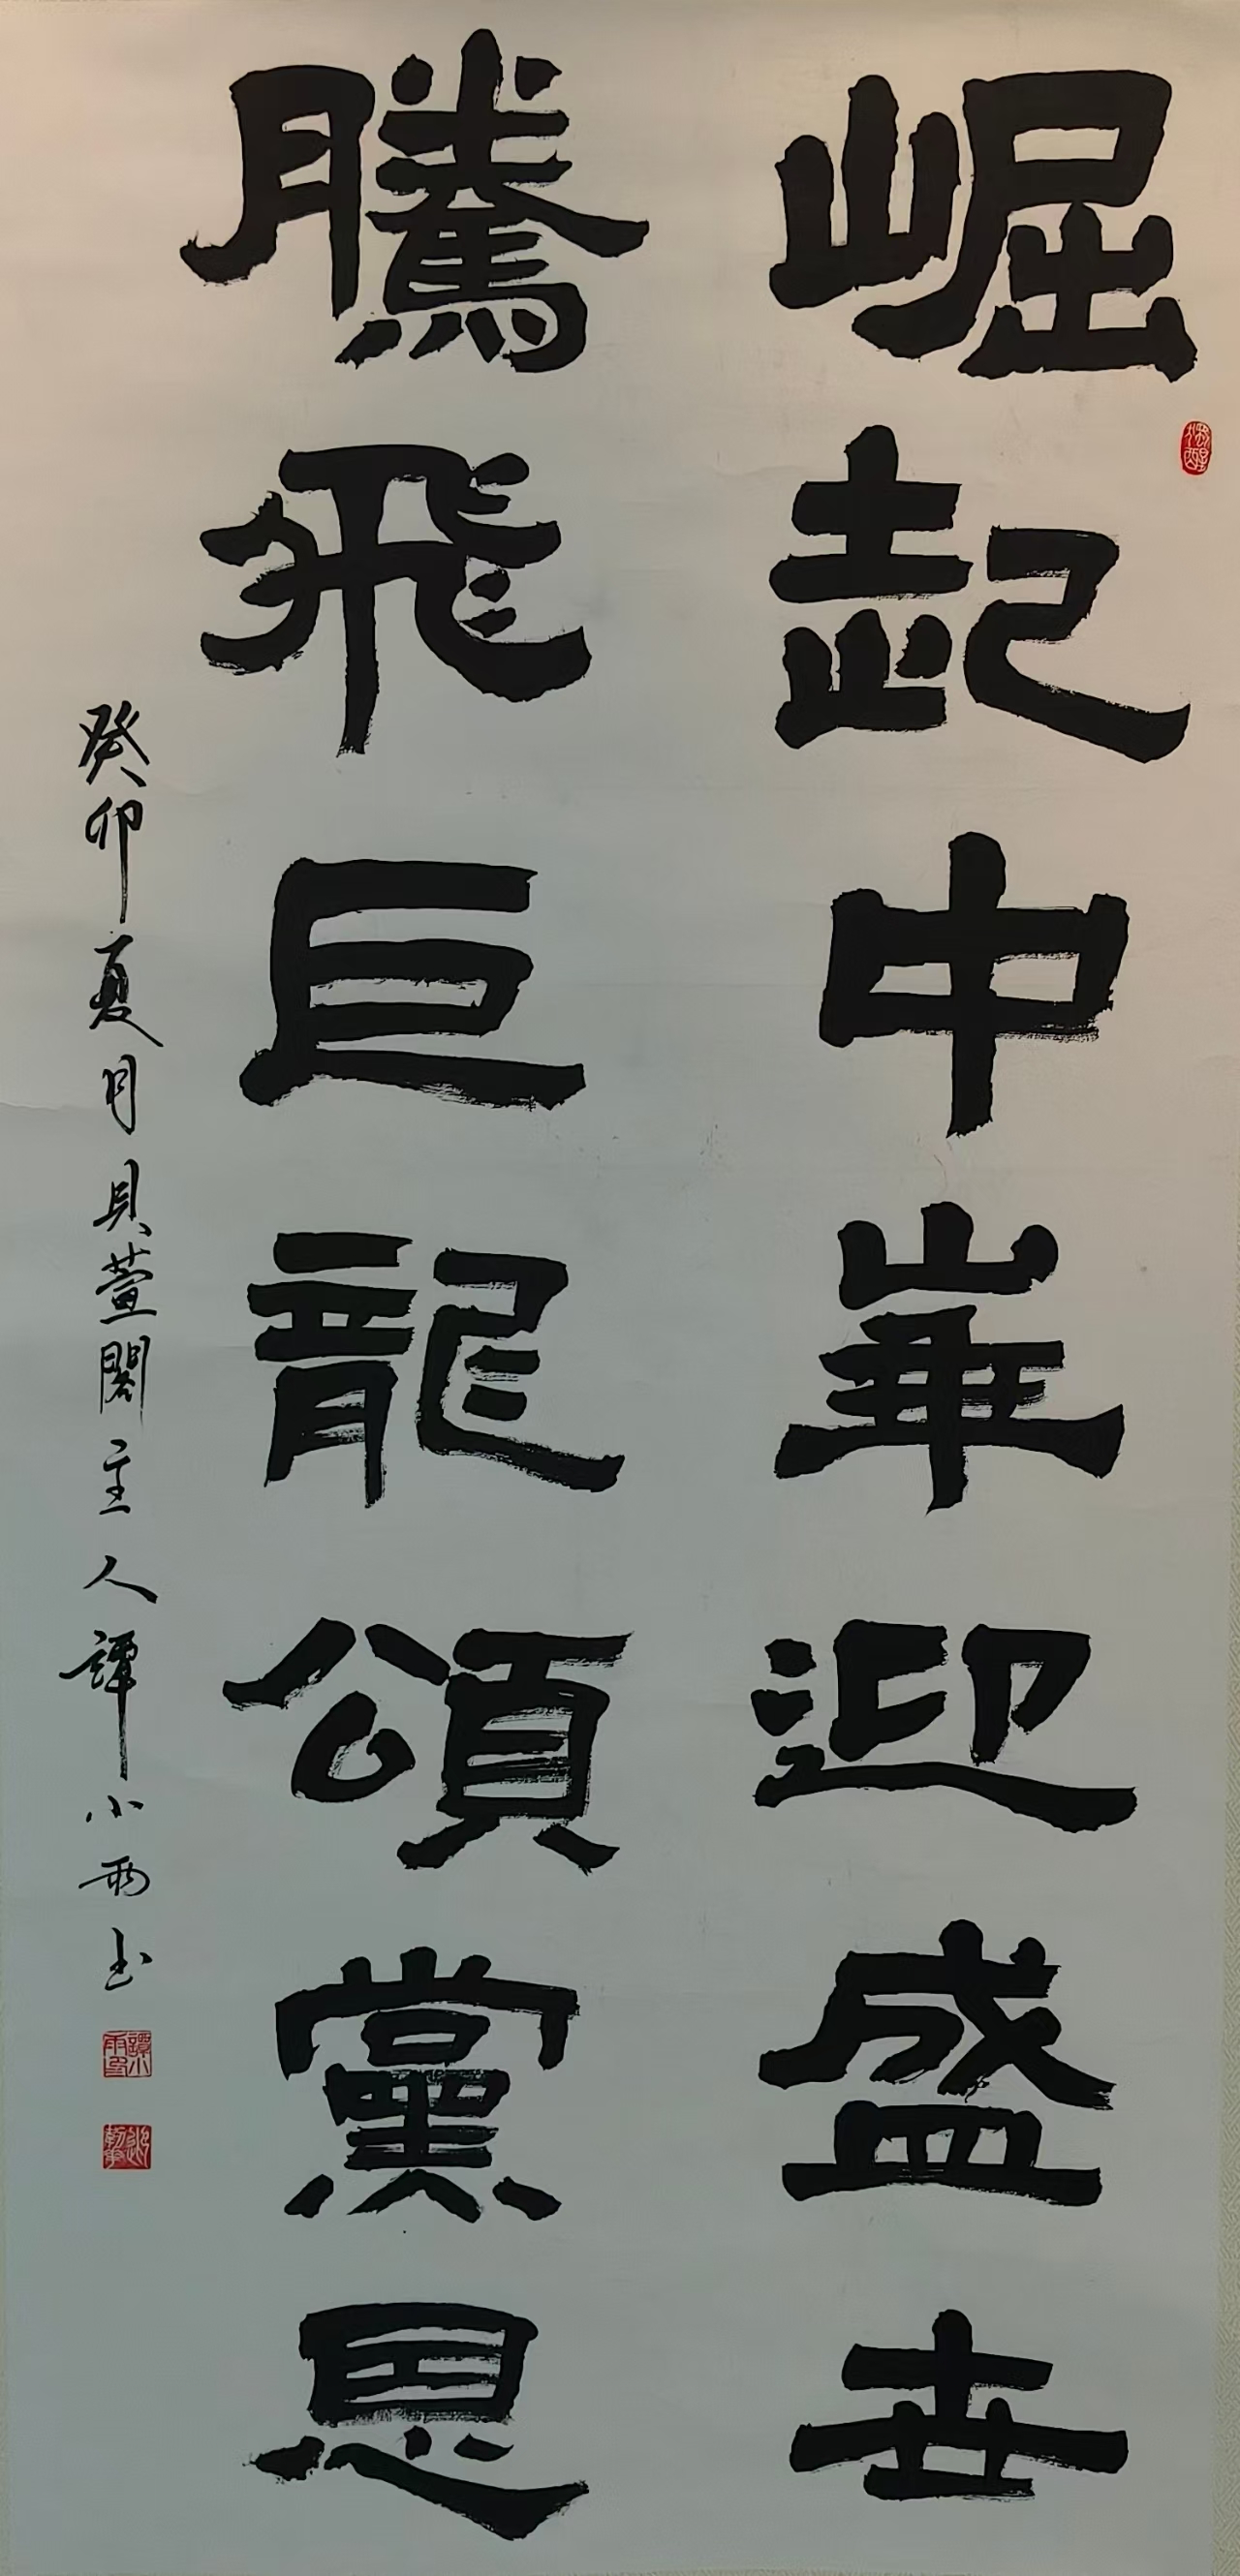 崛起中華迎盛世
騰飛巨龍頌黨恩
癸卯夏月貝萱閣主人譚小雨书